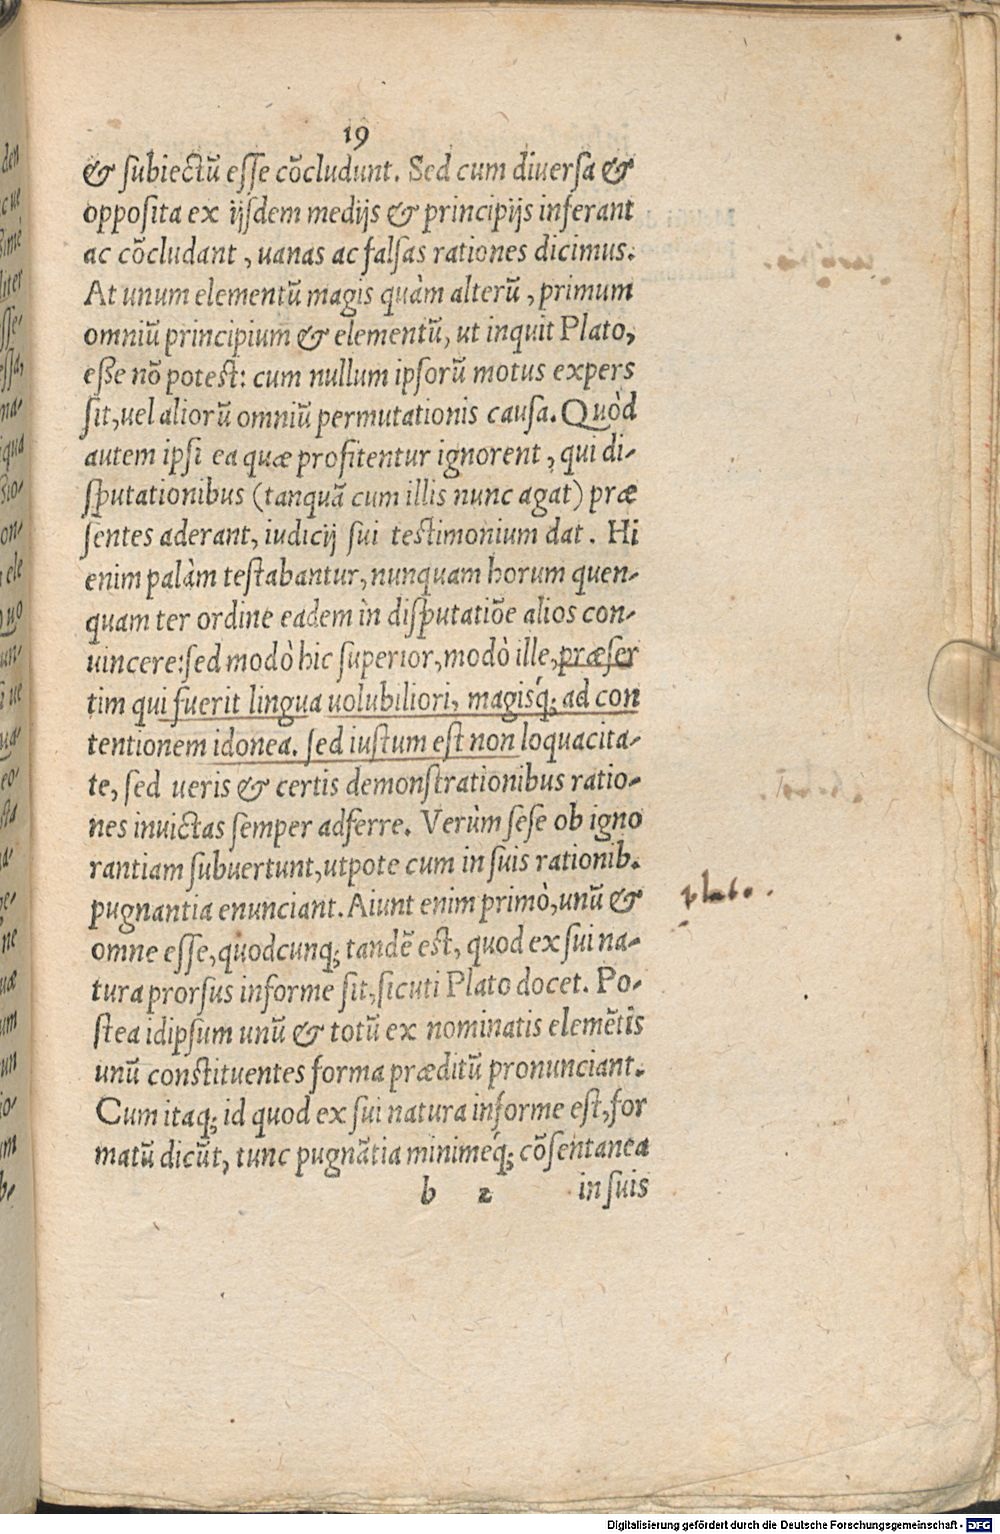 19
& subiectũ esse cõcludunt. Sed cum diuersa &
opposita ex ijsdem medijs & principijs inferant
ac cõcludant, uanas ac falsas rationes dicimus.
At unum elementũ magis quàm alterũ, primum
omniũ principium & elementũ, ut inquit Plato,
esse nõ potest: cum nullum ipsorũ motus expers
sit, uel aliorũ omniũ permutationis causa. Quòd
autem ipsi ea quæ profitentur ignorent, qui di-
sputationibus (tanquã cum illis nunc agat) præ
sentes aderant, iudicij sui testimonium dat. Hi
enim palàm testabantur, nunquam horum quen-
quam ter ordine eadem in disputatiõe alios con-
uincere: sed modò hic superior, modò ille, præser
tim qui fuerit lingua uolubiliori, magisq́; ad con
tentionem idonea. sed iustum est non loquacita-
te, sed ueris & certis demonstrationibus ratio-
nes inuictas semper adferre. Verùm sese ob igno
rantiam subuertunt, utpote cum in suis rationib.
pugnantia enunciant. Aiunt enim primò, unũ &
omne esse, quodcunq; tandẽ est, quod ex sui na-
tura prorsus informe sit, sicuti Plato docet. Po-
stea idipsum unũ & totũ ex nominatis elemẽtis
unũ constituentes forma præditũ pronunciant.
Cum itaq; id quod ex sui natura informe est, for
matũ dicũt, tunc pugnãtia minimeq́; cõsentanea
b 2 in suis
plato.
Digitalisierung gefördert durch die Deutsche Forschungsgemeinschaft - DFG